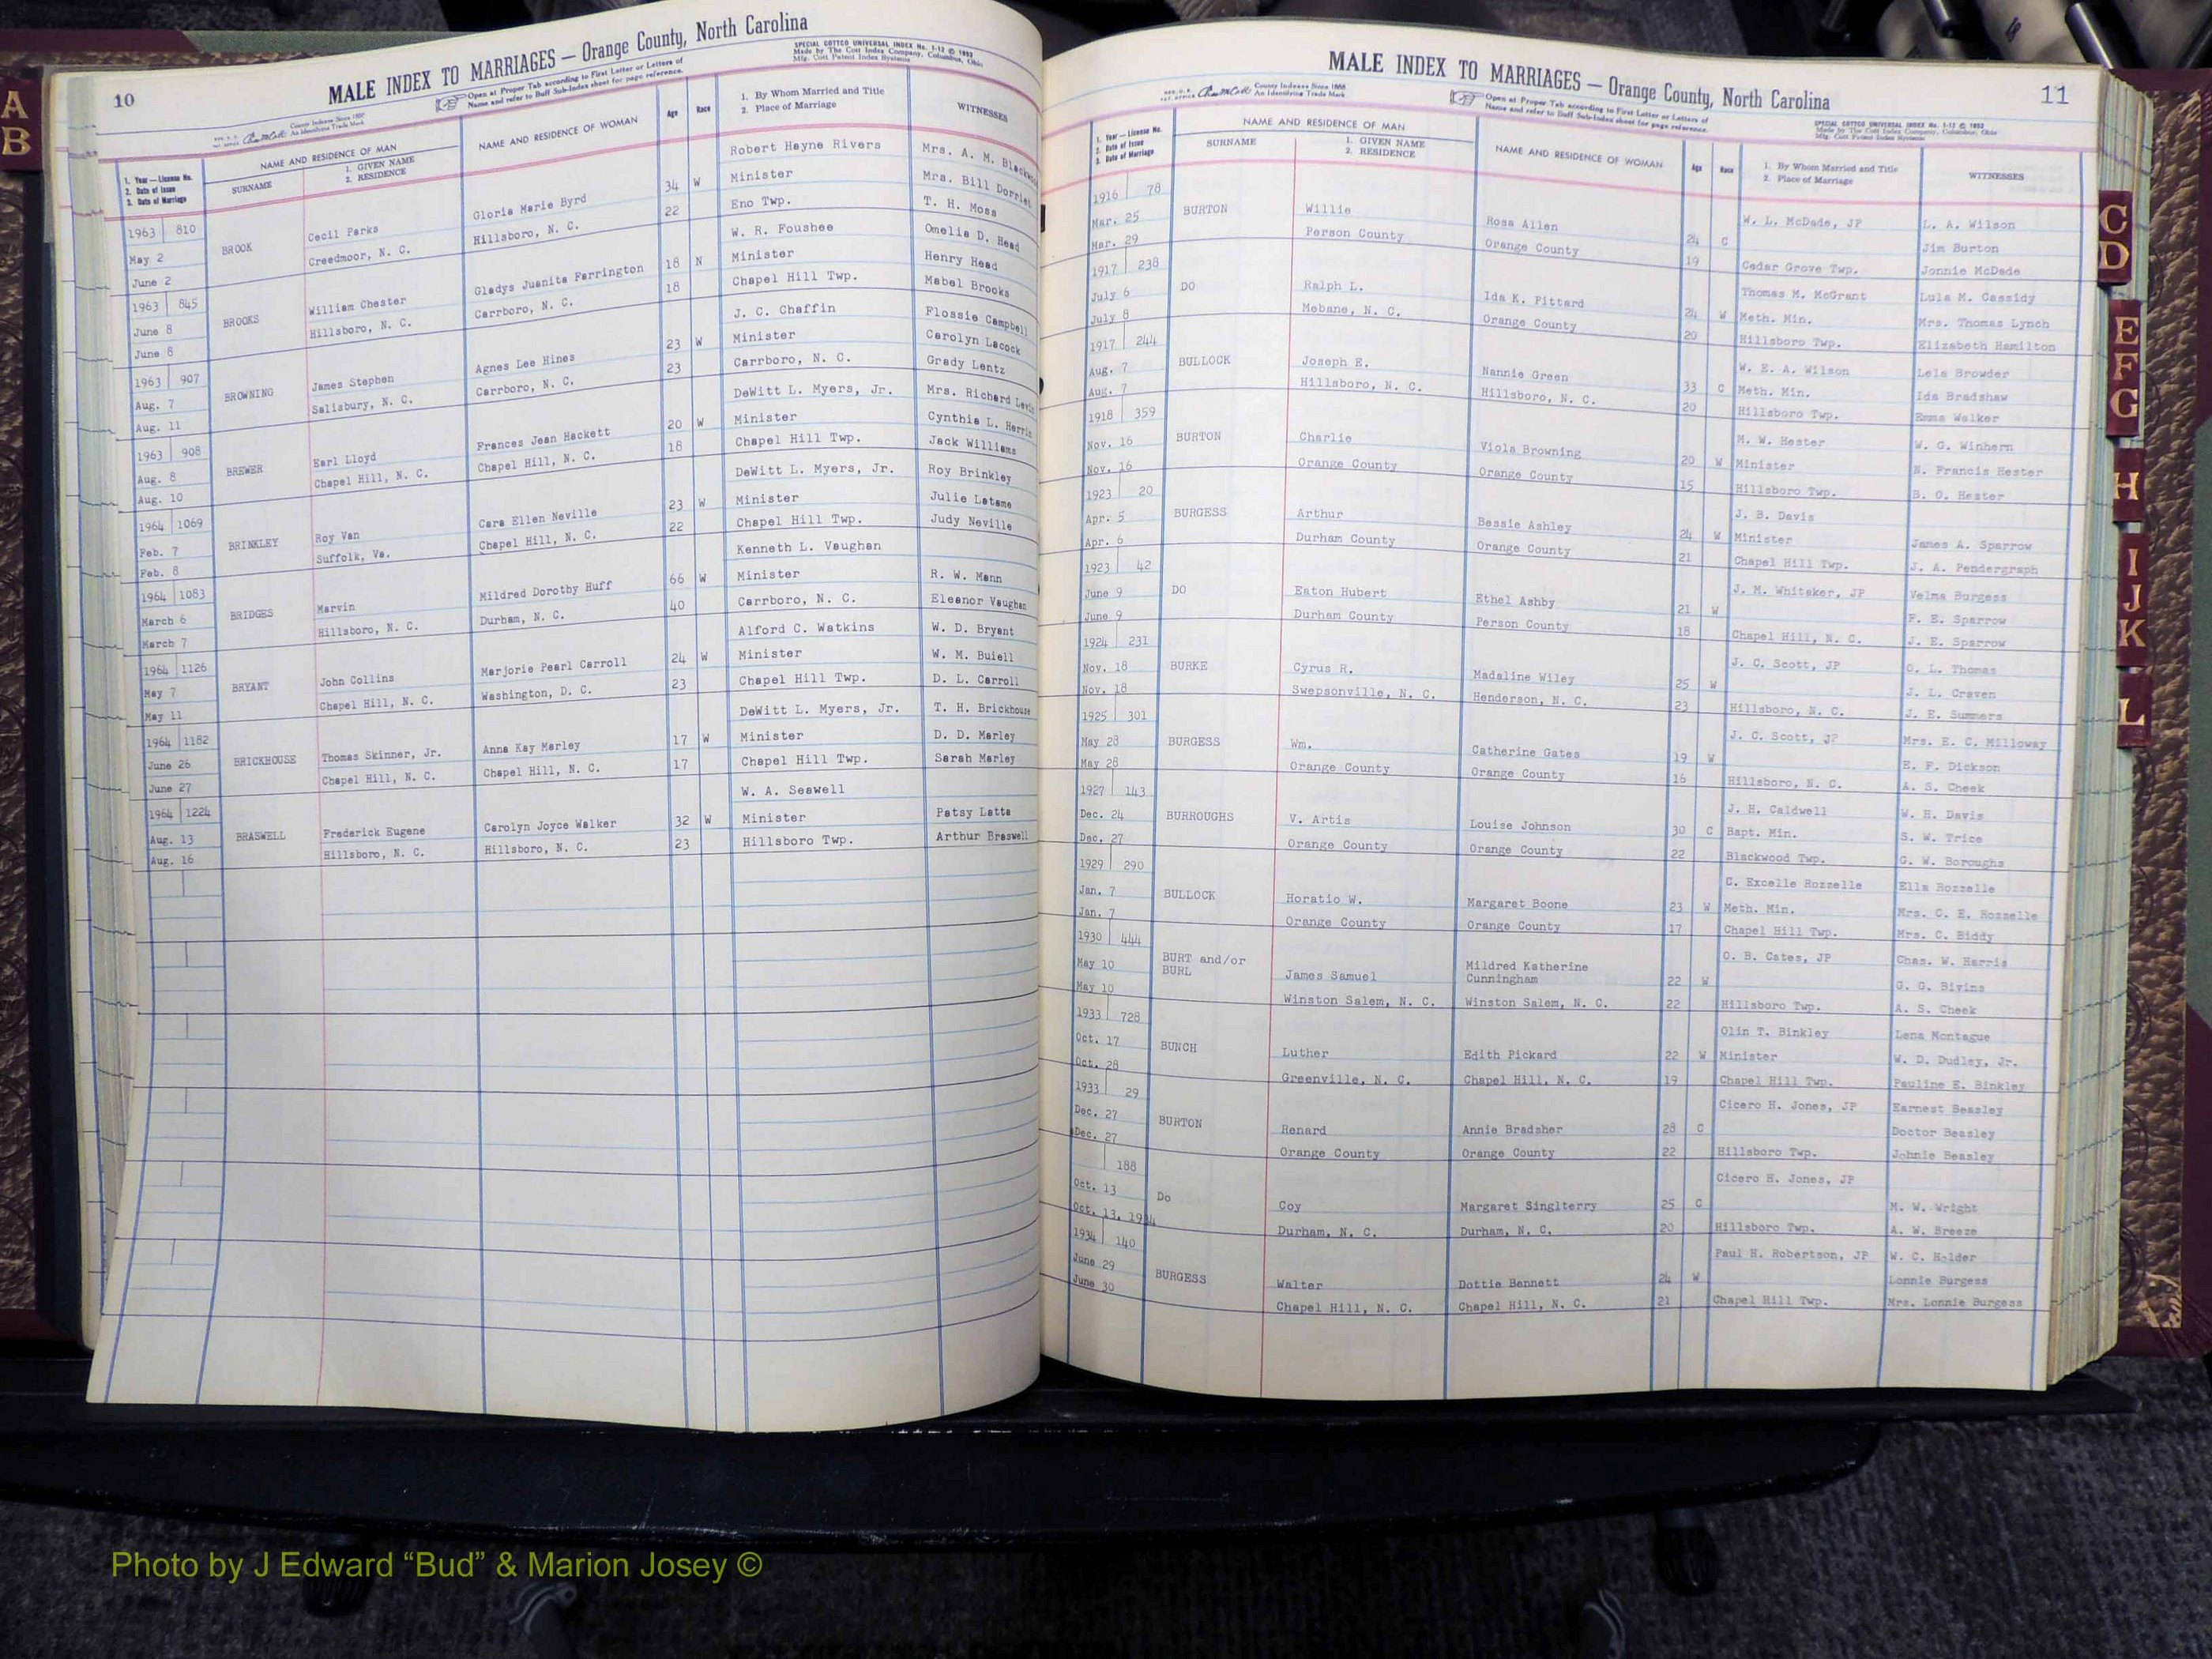 A
B
10
MALE INDEX TO MARRIAGES — Orange County, North Carolina
SPECIAL COTTCO UNIVERSAL INDEX No. 1-12 © 1952
Made by The Cott Index Company, Columbus, Ohio
Mfg. Cott Patent Index Systems
Open at Proper Tab according to First Letter or Letters of
Name and refer to Buff Sub-Index sheet for page reference.
An Identifying Trade Mark
1. Year — License No.
2. Date of Issue
3. Date of Marriage
NAME AND RESIDENCE OF MAN
SURNAME
1. GIVEN NAME
2. RESIDENCE
NAME AND RESIDENCE OF WOMAN
Age
Race
1. By Whom Married and Title
2. Place of Marriage
WITNESSES
1963 810 BROOK Cecil Parks Gloria Marie Byrd 34 W Robert Hayne Rivers Mrs. A. M.
May 2 Creedmoor, N. C. Hillsboro, N. C. 22 Minister Mrs. Bill
June 2 Eno Twp. T. H. Moss
1963 845 BROOKS William Chester Gladys Juanita Farrington 18 N W. R. Foushee Omelia D. Head
June 8 Hillsboro, N. C. Carrboro, N. C. 18 Minister Henry Head
June 8 Chapel Hill Twp. Mabel Brooks
1963 907 BROWNING James Stephen Agnes Lee Hines 23 W J. C. Chaffin Flossie Campbell
Aug. 7 Salisbury, N. C. Carrboro, N. C. 23 Minister Carolyn Lacock
Aug. 11 Carrboro, N. C. Grady Lentz
1963 908 BREWER Earl Lloyd Frances Jean Hackett 20 W DeWitt L. Myers, Jr. Mrs. Richard
Aug. 8 Chapel Hill, N. C. Chapel Hill, N. C. 18 Minister Cynthia L.
Aug. 10 Chapel Hill Twp. Jack Williams
1964 1069 BRINKLEY Roy Van Cara Ellen Neville 23 W DeWitt L. Myers, Jr. Roy Brinkley
Feb. 7 Suffolk, Va. Chapel Hill, N. C. 22 Minister Julie Latame
Feb. 8 Chapel Hill Twp. Judy Neville
1964 1083 BRIDGES Marvin Mildred Dorothy Huff 66 W Kenneth L. Vaughan
March 6 Hillsboro, N. C. Durham, N. C. 40 Minister R. W. Mann
March 7 Carrboro, N. C. Eleanor Vaughan
1964 1126 BRYANT John Collins Marjorie Pearl Carroll 24 W Alford C. Watkins W. D. Bryant
May 7 Chapel Hill, N. C. Washington, D. C. 23 Minister W. M. Buiell
May 11 Chapel Hill Twp. D. L. Carroll
1964 1182 BRICKHOUSE Thomas Skinner, Jr. Anna Kay Marley 17 W DeWitt L. Myers, Jr. T. H. Brickhouse
June 26 Chapel Hill, N. C. Chapel Hill, N. C. 17 Minister D. D. Marley
June 27 Chapel Hill Twp. Sarah Marley
1964 1224 BRASWELL Frederick Eugene Carolyn Joyce Walker 32 W W. A. Seawell
Aug. 13 Hillsboro, N. C. Hillsboro, N. C. 23 Minister Patsy Latta
Aug. 16 Hillsboro Twp. Arthur Braswell
11
MALE INDEX TO MARRIAGES — Orange County, North Carolina
County Indexes Since 1888
An Identifying Trade Mark
Open at Proper Tab according to First Letter or Letters of
Name and refer to Buff Sub-Index sheet for page reference.
SPECIAL COTTCO UNIVERSAL INDEX No. 1-12 © 1952
Made by The Cott Index Company, Columbus, Ohio
Mfg. Cott Patent Index Systems
1. Year — License No.
2. Date of Issue
3. Date of Marriage
NAME AND RESIDENCE OF MAN
SURNAME
1. GIVEN NAME
2. RESIDENCE
NAME AND RESIDENCE OF WOMAN
Age
Race
1. By Whom Married and Title
2. Place of Marriage
WITNESSES
1916 78 BURTON Willie Rosa Allen 24 C W. L. McDade, JP L. A. Wilson
Mar. 25 Person County Orange County 19 Jim Burton
Mar. 29 Cedar Grove Twp. Jonnie McDade
1917 238 DO Ralph L. Ida K. Pittard 24 W Thomas M. McGrant Lula M. Cassidy
July 6 Mebane, N. C. Orange County 20 Meth. Min. Mrs. Thomas Lynch
July 8 Hillsboro Twp. Elizabeth Hamilton
1917 244 BULLOCK Joseph E. Nannie Green 33 C W. E. A. Wilson Lela Browder
Aug. 7 Hillsboro, N. C. Hillsboro, N. C. 20 Meth. Min. Ida Bradshaw
Aug. 7 Hillsboro Twp. Emma Walker
1918 359 BURTON Charlie Viola Browning 20 W M. W. Hester W. G. Winhern
Nov. 16 Orange County Orange County 15 Minister N. Francis Hester
Nov. 16 Hillsboro Twp. B. O. Hester
1923 20 BURGESS Arthur Bessie Ashley 24 W J. B. Davis
Apr. 5 Durham County Orange County 21 Minister James A. Sparrow
Apr. 6 Chapel Hill Twp. J. A. Pendergraph
1923 42 DO Eaton Hubert Ethel Ashby 21 W J. M. Whitaker, JP Velma Burgess
June 9 Durham County Person County 18 F. E. Sparrow
June 9 Chapel Hill, N. C. J. E. Sparrow
1924 231 BURKE Cyrus R. Madaline Wiley 25 W J. C. Scott, JP O. L. Thomas
Nov. 18 Swepsonville, N. C. Henderson, N. C. 23 J. L. Craven
Nov. 18 Hillsboro, N. C. J. E. Summers
1925 301 BURGESS Wm. Catherine Gates 19 W J. C. Scott, JP Mrs. E. C. Milloway
May 28 Orange County Orange County 16 E. F. Dickson
May 28 Hillsboro, N. C. A. S. Cheek
1927 143 BURROUGHS V. Artis Louise Johnson 30 C J. H. Caldwell W. H. Davis
Dec. 24 Orange County Orange County 22 Bapt. Min. S. W. Trice
Dec. 27 Blackwood Twp. G. W. Boroughs
1929 290 BULLOCK Horatio W. Margaret Boone 23 W C. Excelle Rozzelle Ella Rozzelle
Jan. 7 Orange County Orange County 17 Meth. Min. Mrs. C. E. Rozzelle
Jan. 7 Chapel Hill Twp. Mrs. C. Biddy
1930 444 BURT and/or BURL James Samuel Mildred Katherine Cunningham 22 W O. B. Cates, JP Chas. W. Harris
May 10 Winston Salem, N. C. Winston Salem, N. C. 22 G. G. Bivins
May 10 Hillsboro Twp. A. S. Cheek
1933 728 BUNCH Luther Edith Pickard 22 W Olin T. Binkley Lena Montague
Oct. 17 Greenville, N. C. Chapel Hill, N. C. 19 Minister W. D. Dudley, Jr.
Oct. 28 Chapel Hill Twp. Pauline E. Binkley
1933 29 BURTON Renard Annie Bradsher 28 C Cicero H. Jones, JP Earnest Beasley
Dec. 27 Orange County Orange County 22 Doctor Beasley
Dec. 27 Hillsboro Twp. Johnie Beasley
188 Do Coy Margaret Singlterry 25 C Cicero H. Jones, JP
Oct. 13 Durham, N. C. Durham, N. C. 20 M. W. Wright
Oct. 13, 1934 Hillsboro Twp. A. W. Breeze
1934 140 BURGESS Walter Dottie Bennett 24 W Paul H. Robertson, JP W. C. Holder
June 29 Chapel Hill, N. C. Chapel Hill, N. C. 21 Lonnie Burgess
June 30 Chapel Hill Twp. Mrs. Lonnie Burgess
C
D
E
F
G
H
I
J
K
L
Photo by J Edward “Bud” & Marion Josey ©